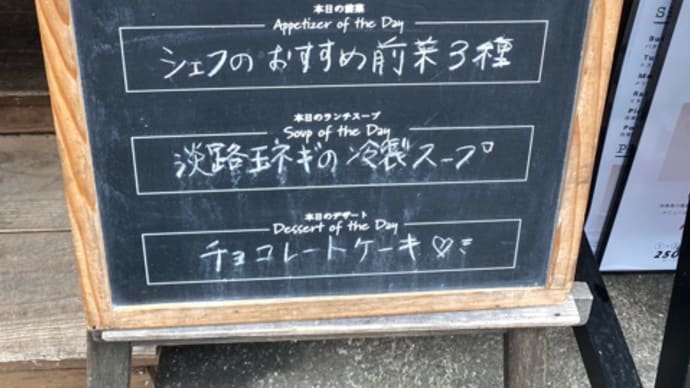 本日の前菜
Appetizer of the Day
シェフのおすすめ前菜3種
本日のランチスープ
Soup of the Day
淡路玉ネギの冷製スープ
本日のデザート
Dessert of the Day
チョコレートケーキ♡